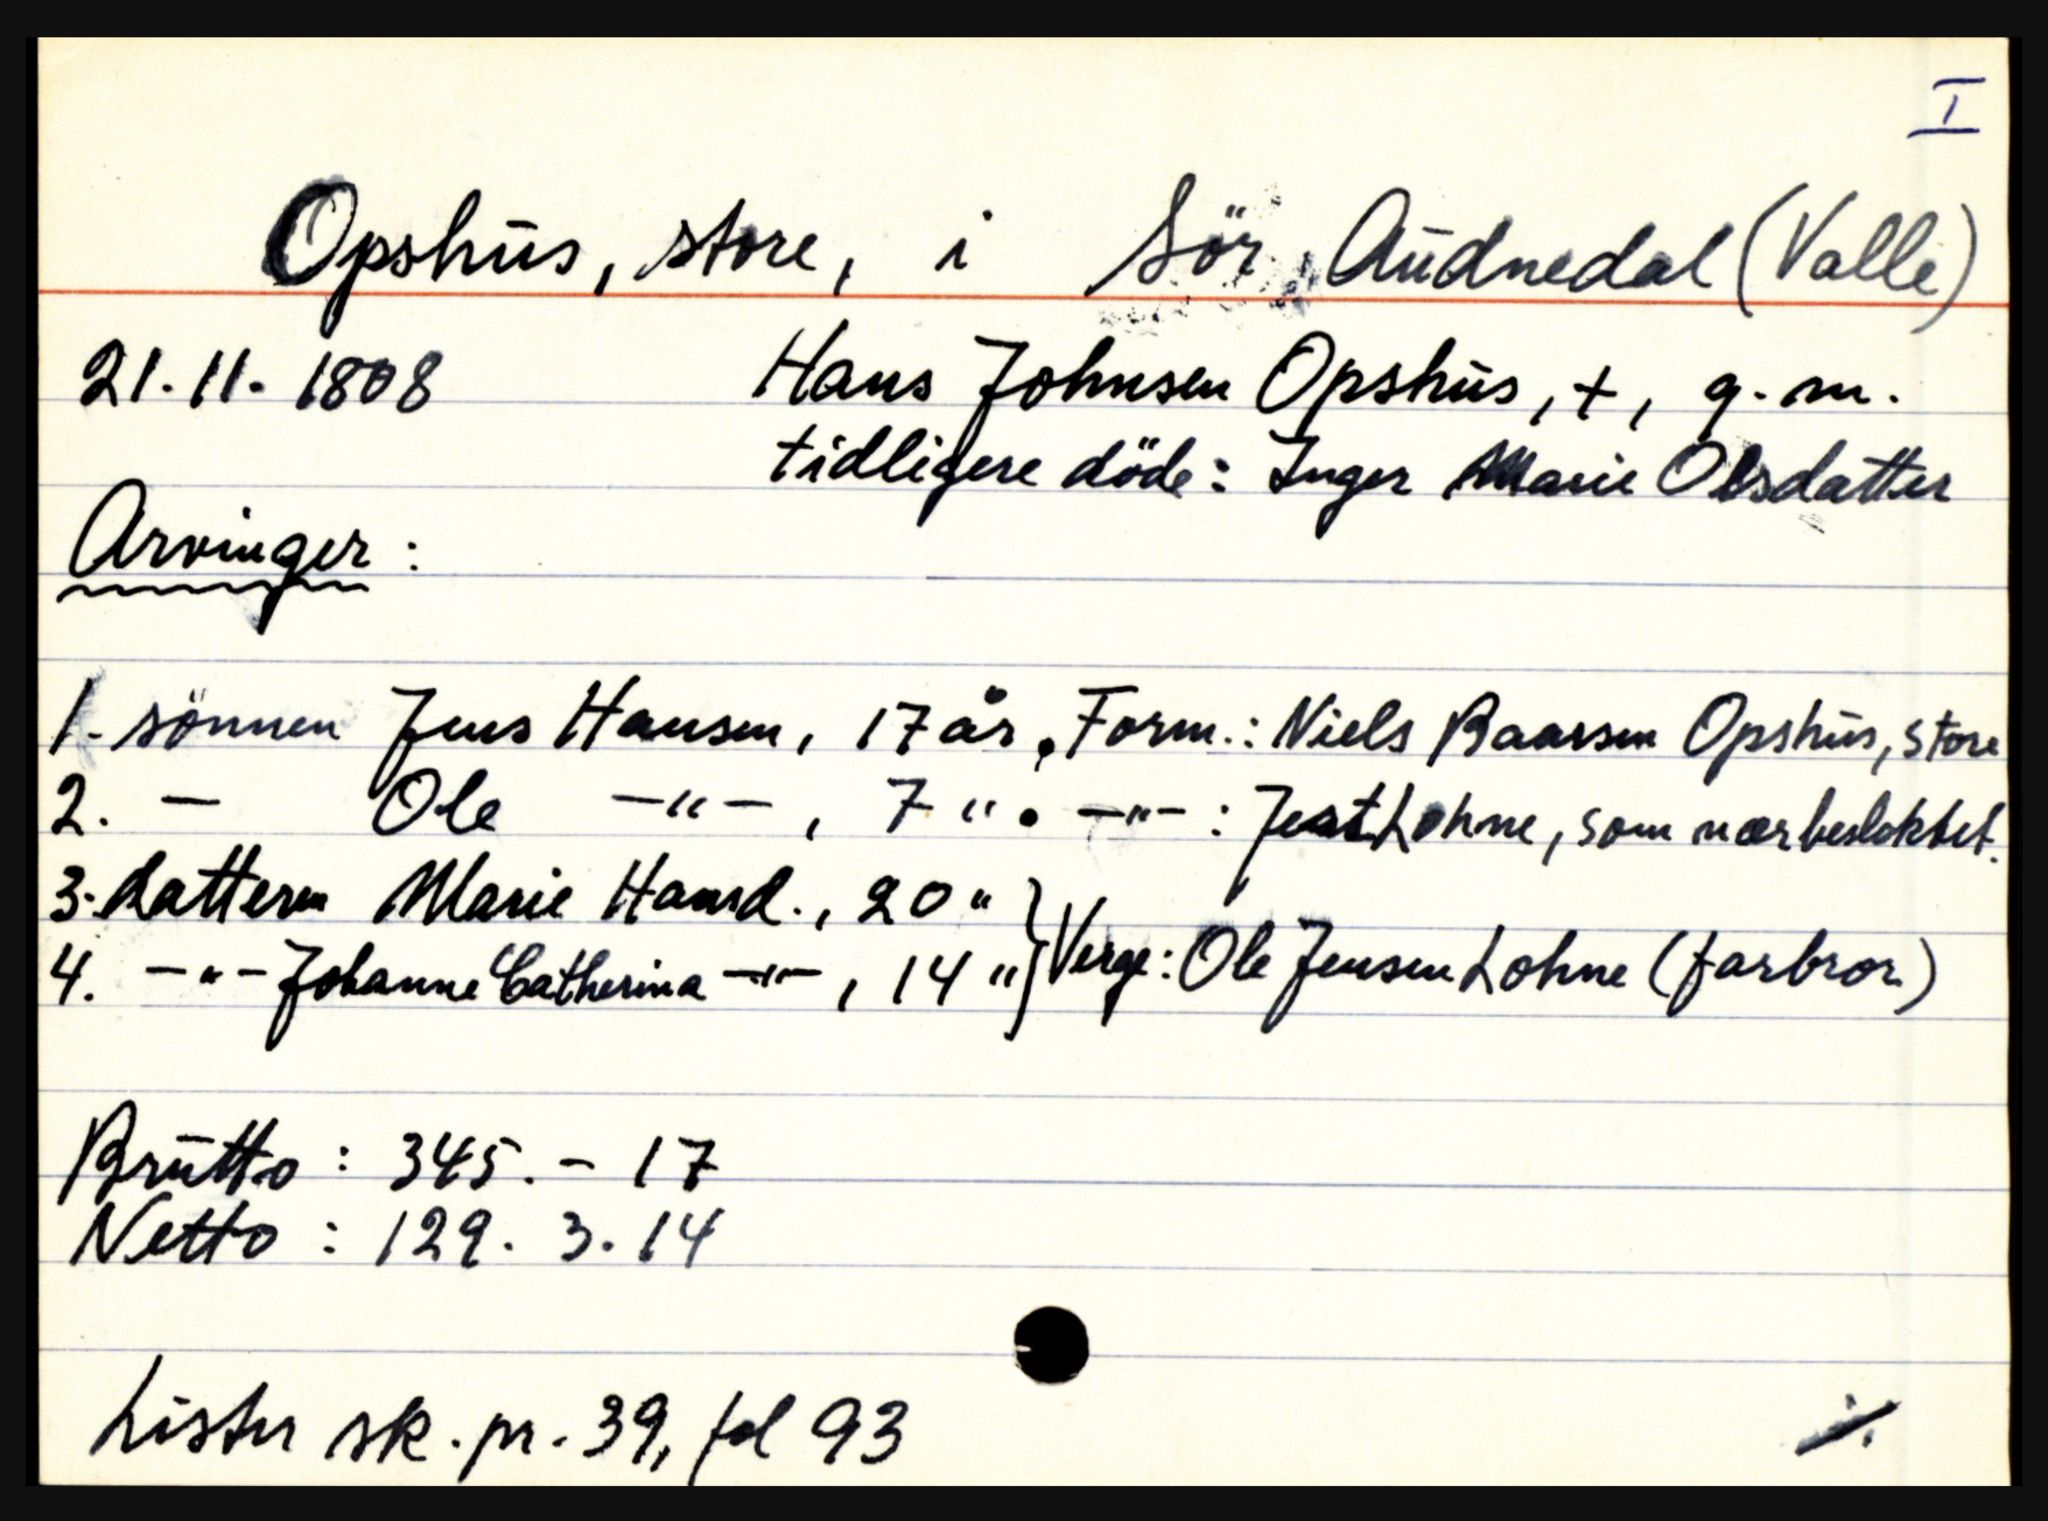 I
Opshus, store, i Sör Audnedal (Valle)
21.11.1808 Hans Johnsen Opshus, +, g.m.
tidligere döde: Inger Marie Olsdatter
Arvinger:
1. sönnen Jens Hansen, 17 år. Form.: Niels Baarsen Opshus, store
2. — Ole —"—, 7 ". —"—: Jest Lohne, som nær besloktet.
3. datteren Marie Hansd., 20 "
4. —"— Johanne Catherina —"—, 14 " } Verge: Ole Jensen Lohne (farbror)
Brutto: 345. - 17
Netto: 129. 3. 14
Lister sk. pr. 39, fol 93
./.